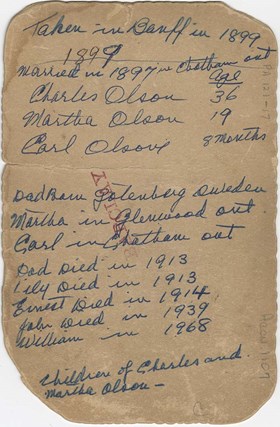 Taken in Banff in 1899
1899
Married in 1897 in Chatham ont
Age
Charles Olson 36
Martha Olson 19
Carl Olson 8 Months
Dad Born Gotenberg Sweden
Martha in Glenwood ont
Carl in Chatham ont
Dad Died in 1913
Lily Died in 1913
Ernest Died in 1914
John Died in 1939
William in 1968
Children of Charles and
Martha Olson —